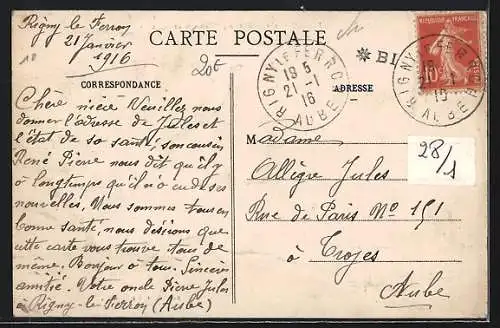 Rigny le Ferron
21 Janvier
1916
20€
CARTE POSTALE
CORRESPONDANCE
ADRESSE
RIGNY LE FERRON
21 -1
16
AUBE
RÉPUBLIQUE FRANÇAISE
10
28/1
Chère nièce Veuillez nous
donner l'adresse de Jules et
l'état de so santé, son cousin
René Pierre nous dit qu'il y
a longtemps qu'il n'a eu de ses
nouvelles. Nous sommes tous en
bonne santé, nous désirons que
cette carte vous trouve tous de
même. Bonjour à tous. Sincères
amitié. Votre oncle Pierre Jules
à Rigny-le-Ferron (Aube)
Madame
Allègre Jules
Rue de Paris No 151
à Troyes
Aube